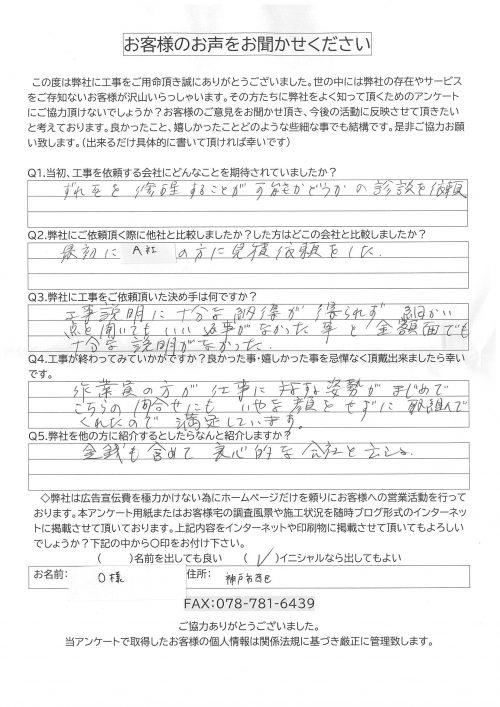 お客様のお声をお聞かせください
この度は弊社に工事をご用命頂き誠にありがとうございました。世の中には弊社の存在やサービス
をご存知ないお客様が沢山いらっしゃいます。その方たちに弊社をよく知って頂くためのアンケート
にご協力頂けないでしょうか？お客様のご意見をお聞かせ頂き、今後の活動に反映させて頂きたい
と考えております。良かったこと、嬉しかったことどのような些細な事でも結構です。是非ご協力お願
い致します。（出来るだけ具体的に書いて頂ければ幸いです）
Q1.当初、工事を依頼する会社にどんなことを期待されていましたか？
ずれを修理することが可能かどうかの診談を依頼
Q2.弊社にご依頼頂く際に他社と比較しましたか？した方はどこの会社と比較しましたか？
最初に A社 の方に見積依頼をした.
Q3.弊社に工事をご依頼頂いた決め手は何ですか？
工事説明に十分な納得が得られず 細かい
点を聞いてもいい返事がなかった事と金額面でも
十分な説明がなかった.
Q4.工事が終わってみていかがですか？良かった事・嬉しかった事を忌憚なく頂戴出来ましたら幸い
です。
作業員の方が仕事に対する姿勢がまじめで
こちらの問合せにもいやな顔をせずに取組んで
くれたので満足しています。
Q5.弊社を他の方に紹介するとしたらなんと紹介しますか？
金銭も含めて良心的な会社と云える.
◇弊社は広告宣伝費を極力かけない為にホームページだけを頼りにお客様への営業活動を行って
おります。本アンケート用紙またはお客様宅の調査風景や施工状況を随時ブログ形式のインターネッ
トに掲載させて頂いております。上記内容をインターネットや印刷物に掲載させて頂いてもよろしい
でしょうか？下記の中から○印をお付け下さい。
（　　）名前を出しても良い　（✓）イニシャルなら出してもよい
お名前： O様 住所： 神戸市西区
FAX:078-781-6439
ご協力ありがとうございました。
当アンケートで取得したお客様の個人情報は関係法規に基づき厳正に管理致します。